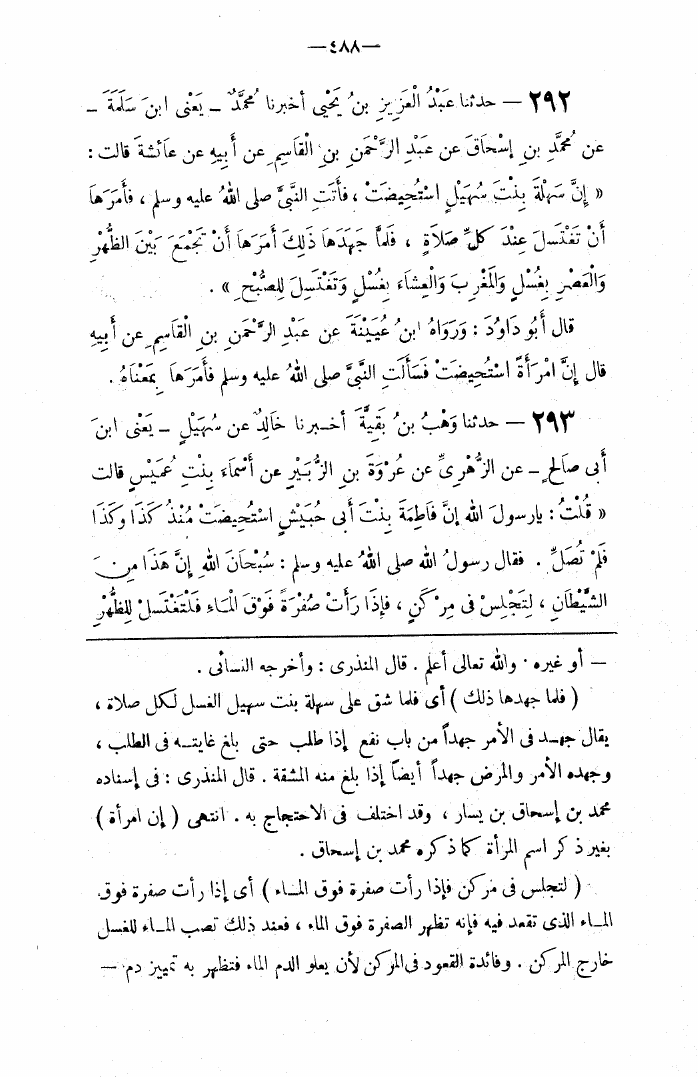 —٤٨٨—
٢٩٢ — حدثنا عَبْدُ الْعَزِيزِ بنُ يَحْيَى أخبرنا مُحمَّدٌ ــ يَعْنى ابنَ سَلَمَةَ ــ
عن مُحمَّدِ بنِ إسْحَاقَ عن عَبْدِ الرَّحْمَنِ بنِ الْقَاسِمِ عن أَبِيهِ عن عائشةَ قالت :
« إنَّ سَهْلَةَ بِنْتَ سُهَيْلٍ اسْتُحِيضَتْ ، فأَتَتِ النَّبىَّ صلى اللهُ عليه وسلم ، فأَمَرَهَا
أَنْ تَغْتَسلَ عِنْدَ كلِّ صَلاَةٍ ، فَلَمَّا جَهَدَهَا ذَلِكَ أَمَرَهَا أَنْ تَجْمَعَ بَيْنَ الظُّهْرِ
وَالْعَصْرِ بِغُسْلٍ وَالمَغْرِبَ وَالْعِشَاءَ بِغُسْلٍ وَتَغْتَسِلَ لِلصُّبْحِ » .
قال أَبُو دَاوُدَ : وَرَوَاهُ ابنُ عُيَيْنَةَ عن عَبْدِ الرَّحْمَنِ بنِ الْقَاسِمِ عن أَبِيهِ
قال إنَّ امْرَأَةً اسْتُحِيضَتْ فَسَأَلَتِ النَّبىَّ صلى اللهُ عليه وسلم فأَمَرَهَا بِمَعْنَاهُ .
٢٩٣ — حدثنا وَهْبُ بنُ بَقِيَّةَ أخبرنا خَالِدٌ عن سُهَيْلٍ ــ يَعْنى ابنَ
أبى صَالحٍ ــ عن الزُّهْرِىِّ عن عُرْوَةَ بنِ الزُّبَيْرِ عن أَسْمَاءَ بِنْتِ عُمَيْسٍ قالت
« قُلْتُ : يارسولَ اللهِ إنَّ فَاطِمَةَ بِنْتَ أبى حُبَيْشٍ اسْتُحِيضَتْ مُنْذُ كَذَا وكَذَا
فَلَمْ تُصَلِّ . فقال رسولُ اللهِ صلى اللهُ عليه وسلم : سُبْحَانَ اللهِ إنَّ هَذَا مِنَ
الشَّيْطَانِ ، لِتَجْلِسْ فى مِرْكَنٍ ، فإذَا رَأَتْ صُفْرَةً فَوْقَ المَاءِ فَلْتَغْتَسلْ لِلظُّهْرِ
— أو غيره . والله تعالى أعلم . قال المنذرى : وأخرجه النسائى .
( فلما جهدها ذلك ) أى فلما شق على سهلة بنت سهيل الغسل لكل صلاة ،
يقال جهد فى الأمر جهداً من باب نفع إذا طلب حتى بلغ غايته فى الطلب ،
وجهده الأمر والمرض جهداً أيضاً إذا بلغ منه المشقة . قال المنذرى : فى إسناده
محمد بن إسحاق بن يسار ، وقد اختلف فى الاحتجاج به . انتهى ( إن امرأة )
بغير ذكر اسم المرأة كما ذكره محمد بن إسحاق .
( لتجلس فى مركن فإذا رأت صفرة فوق الماء ) أى إذا رأت صفرة فوق
الماء الذى تقعد فيه فإنه تظهر الصفرة فوق الماء ، فعند ذلك تصب الماء للغسل
خارج المركن . وفائدة القعود فى المركن لأن يعلو الدم الماء فتظهر به تمييز دم —